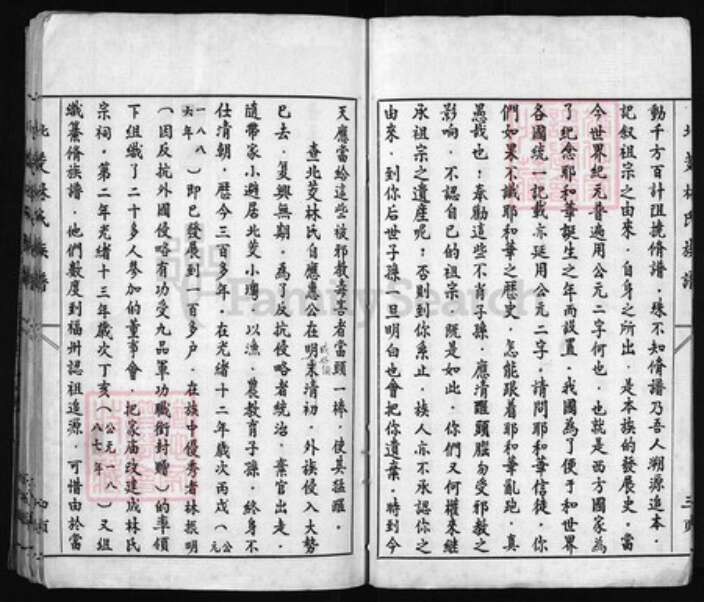 動千方百計阻撓脩譜．殊不知脩譜乃吾人溯源追本．
記叙祖宗之由來．自身之所出．是本族的發展史．當
今世界紀元普遍用公元二字何也．也就是西方國家為
了紀念耶和華誕生之年而設置．我國為了便于和世界
各國統一記載亦延用公元二字．請問耶和華信徒．你
們如果不識耶和華之歷史．怎能跟着耶和華亂跑．真
愚哉也！奉勸這些不肖子孫．應清醒頭腦勿受邪教之
影响．不認自己的祖宗．既是如此．你們又何權來继
承祖宗之遺産呢：否則到你系止．族人亦不承認你之
由來．到你后世子孫一旦明白也會把你遺棄．時到今
北茭林氏族譜
三頁
天應當給這些被邪教毒害者當頭一棒．使其猛醒．
查北茭林氏自應惠公在明末清初．外族侵入大勢
已去．复興無期．為了反抗侵略者統治．棄官出走．
隨帶家小避居北茭小塆．以漁．農教育子孫．終身不
仕清朝．歷今三百多年．在光緒十二年歲次丙戌（公元
一八八六年）即已發展到一百多户．在族中優秀者林振明
（因反抗外國侵略有功受九品軍功職銜封贈）的率領
下組織了二十多人參加的董事會．把家庙改建成林氏
宗祠．第二年光緒十三年歲次丁亥（公元一八八七年）又組
織纂脩族譜．他們數度到福州認祖追源．可惜由於當
北茭林氏族譜
四頁
FamilySearch